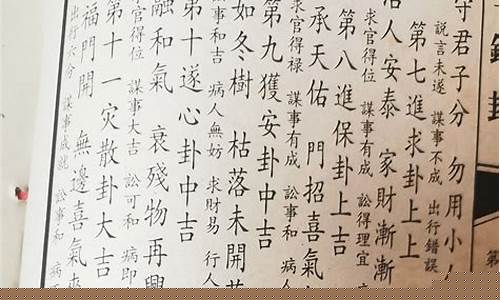 卦
第
守君子分 勿用小
說言未遂 謀事不成 出行錯誤
第七進求卦上上
人安泰 家財漸漸
求官得位 謀事有成 訟得理宜
第八進保卦上吉
承天佑 門招喜氣
求官得祿 謀事有成 訟事和 病人
第九獲安卦中吉
如冬樹 枯落未開
事和吉 病人無妨 求財易 行人
第十遂心卦中吉
融和氣 衰殘物再興
求官得位 謀事大吉 訟可和 病即
第十一灾散卦大吉
福門開 無邊喜氣來
出行 分 謀事成就 訟事和 病